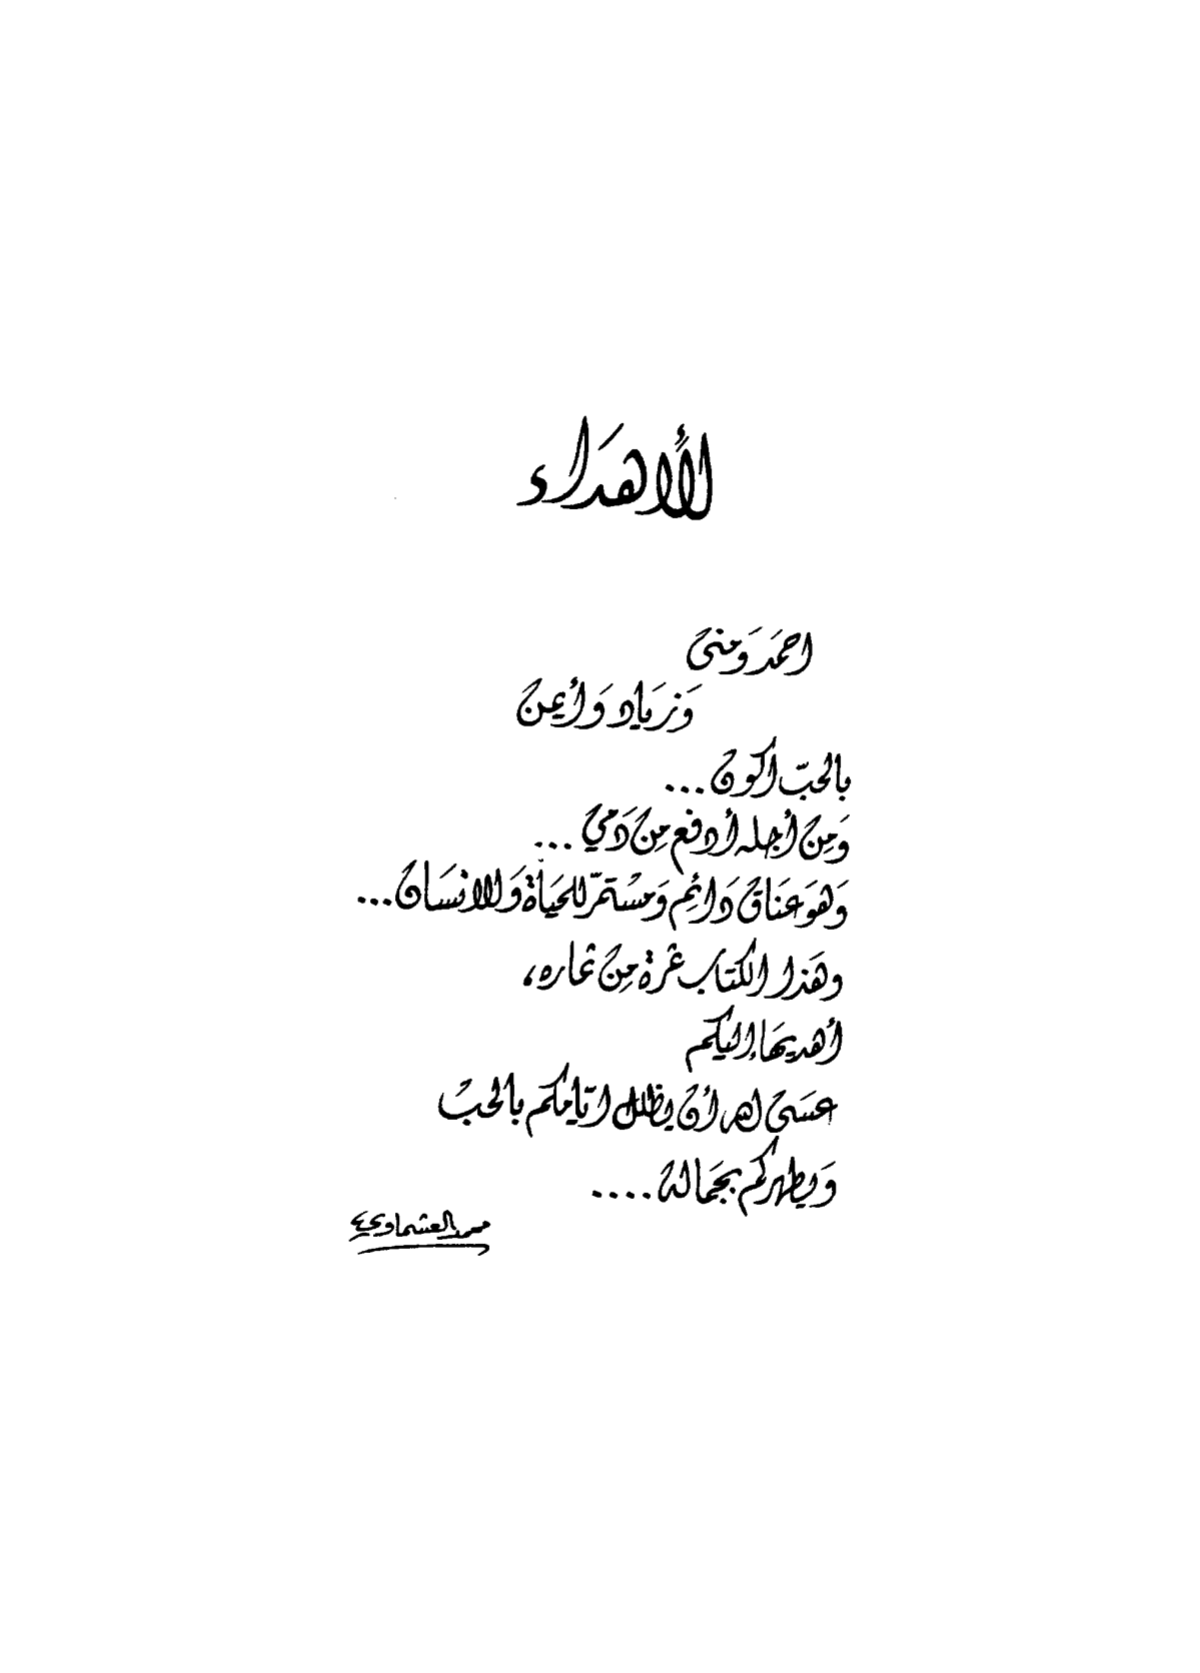 الأهداء
احمَد وَمنى
وَزيَاد وَأيمن
بالحبّ أكون...
وَمِن أجله أدفع مِن دَمي...
وَهوَ عنَاق دَائِم وَمسْتمرّ للحيَاة وَللانسَان...
وهَذا الكتاب ثمرة مِن ثماره،
أهديهَا إليكم
عسَى الله أن يظلل ايّامكم بالحبْ
وَيطهركم بجَماله....
محمد العشماوي